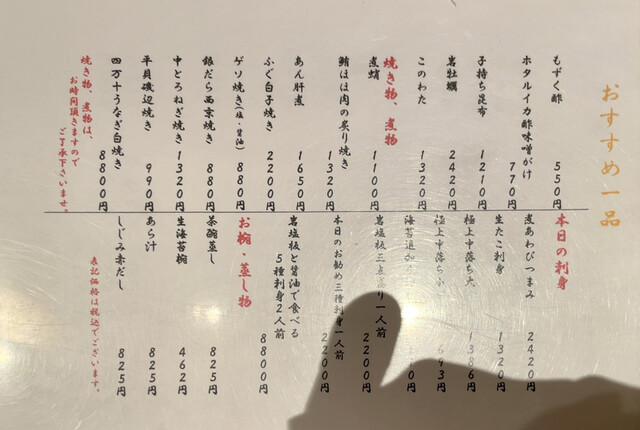 おすすめ一品
もずく酢 550円
ホタルイカ酢味噌がけ 770円
子持ち昆布 1210円
岩牡蠣 2420円
このわた 1320円
焼き物、煮物
煮蛸 1100円
鮪ほほ肉の炙り焼き 1320円
あん肝煮 1650円
ふぐ白子焼き 2200円
ゲソ焼き(塩・醤油) 880円
銀だら西京焼き 880円
中とろねぎ焼き 1320円
平貝磯辺焼き 990円
四万十うなぎ白焼き 8800円
焼き物、煮物は、
お時間頂きますので
ご了承下さいませ。
本日の刺身
煮あわびつまみ 2420円
生たこ刺身 1320円
極上中落ち大 1386円
極上中落ち 693円
海苔追加 円
岩塩板三点盛り一人前 2200円
本日のお勧め三種刺身一人前 2200円
岩塩板と醤油で食べる
5種刺身2人前 8800円
お椀・蒸し物
茶碗蒸し 825円
生海苔椀 462円
あら汁 825円
しじみ赤だし 825円
表記価格は税込でございます。